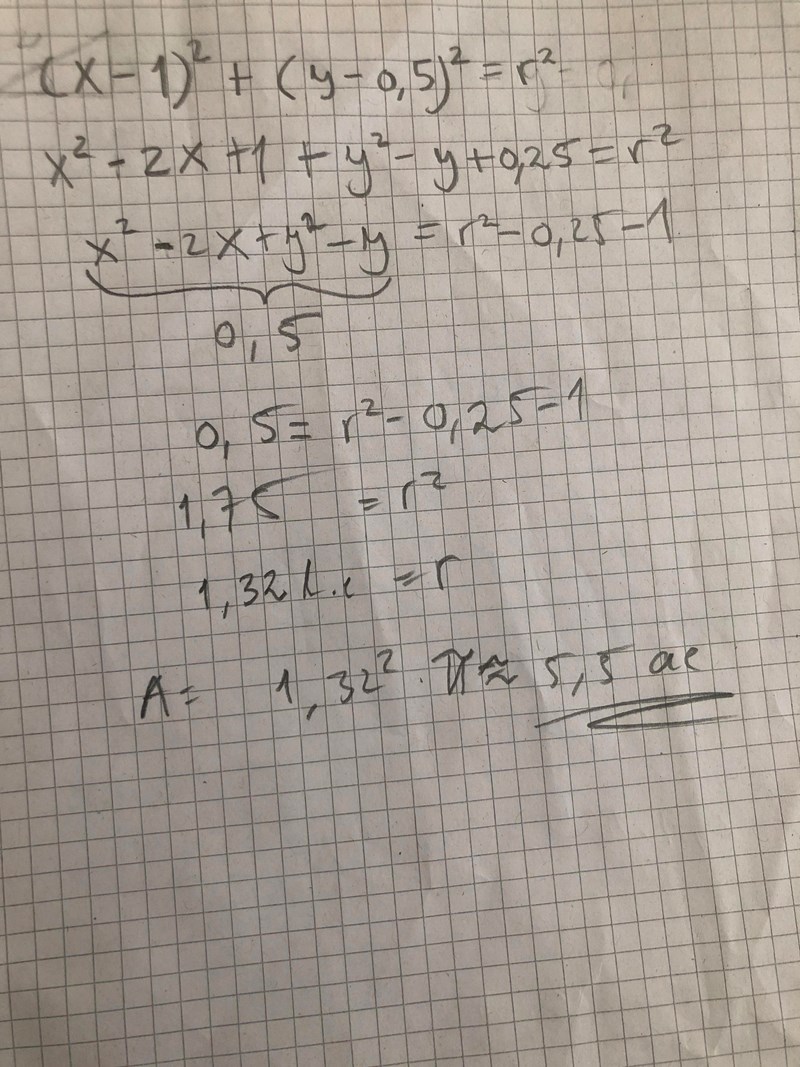 (x-1)² + (y-0,5)² = r²
x² - 2x + 1 + y² - y + 0,25 = r²
x² - 2x + y² - y = r² - 0,25 - 1
0,5
0,5 = r² - 0,25 - 1
1,75 = r²
1,32 l.e = r
A = 1,32² · π ≈ 5,5 ae